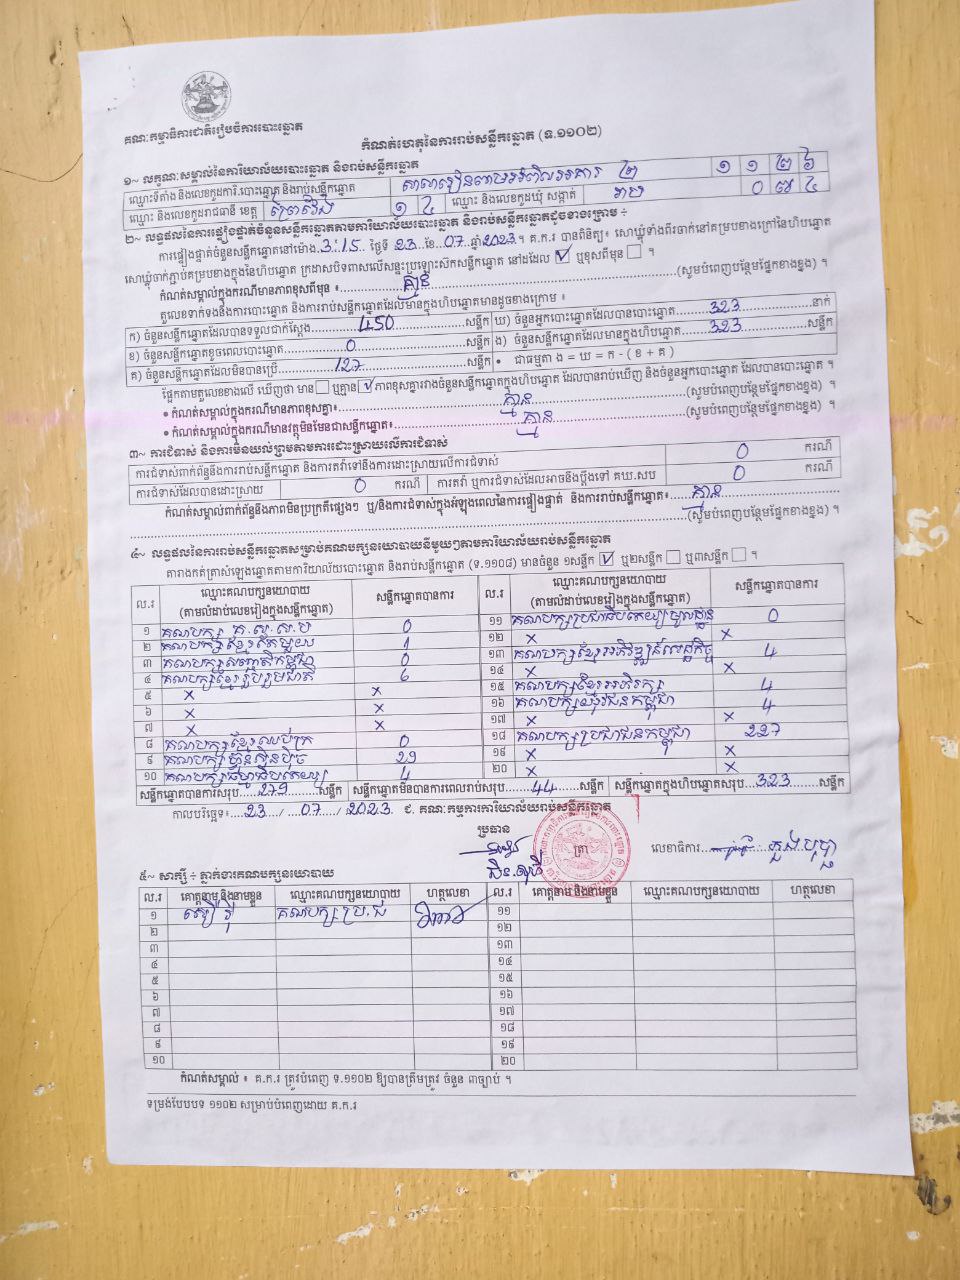 គណៈកម្មាធិការជាតិរៀបចំការបោះឆ្នោត
កំណត់ហេតុនៃការរាប់សន្លឹកឆ្នោត (ទ.១១០២)
១~ លក្ខណៈសម្គាល់នៃការិយាល័យបោះឆ្នោត និងរាប់សន្លឹកឆ្នោត
ឈ្មោះទីតាំង និងលេខកូដការិ.បោះឆ្នោត និងរាប់សន្លឹកឆ្នោត ២ ១ ១ ២ ៦
ឈ្មោះ និងលេខកូដរាជធានី ខេត្ត ព្រៃវែង ១ ៤ ឈ្មោះ និងលេខកូដឃុំ សង្កាត់ រាប ០ ៧ ៤
២~ លទ្ធផលនៃការផ្ទៀងផ្ទាត់ចំនួនសន្លឹកឆ្នោតតាមការិយាល័យបោះឆ្នោត និងរាប់សន្លឹកឆ្នោតដូចខាងក្រោម ÷
ការផ្ទៀងផ្ទាត់ចំនួនសន្លឹកឆ្នោតនៅម៉ោង 3:15 ថ្ងៃទី 23 ខែ 07 ឆ្នាំ 2023 ។ គ.ក.រ បានពិនិត្យ៖ សោឃ្លុំទាំងពីរចាក់នៅគម្របខាងក្រៅនៃហិបឆ្នោត
សោឃ្លុំចាក់ភ្ជាប់គម្របខាងក្នុងនៃហិបឆ្នោត ក្រដាសបិទពាសលើសន្ទះប្រឡោះសៀកសន្លឹកឆ្នោត នៅដដែល ☑ ឬខុសពីមុន ☐ ។
កំណត់សម្គាល់ក្នុងករណីមានភាពខុសពីមុន ៖ គ្មាន (សូមបំពេញបន្ថែមផ្នែកខាងខ្នង) ។
តួលេខទាក់ទងនឹងការបោះឆ្នោត និងការរាប់សន្លឹកឆ្នោតដែលមានក្នុងហិបឆ្នោតមានដូចខាងក្រោម ៖
ក) ចំនួនសន្លឹកឆ្នោតដែលបានទទួលជាក់ស្តែង 450 សន្លឹក ឃ) ចំនួនអ្នកបោះឆ្នោតដែលបានបោះឆ្នោត 323 នាក់
ខ) ចំនួនសន្លឹកឆ្នោតខូចពេលបោះឆ្នោត 0 សន្លឹក ង) ចំនួនសន្លឹកឆ្នោតដែលមានក្នុងហិបឆ្នោត 323 សន្លឹក
គ) ចំនួនសន្លឹកឆ្នោតដែលមិនបានប្រើ 127 សន្លឹក • ជាធម្មតា ង = ឃ = ក - ( ខ + គ )
ផ្អែកតាមតួលេខខាងលើ ឃើញថា មាន ☐ ឬគ្មាន ☑ ភាពខុសគ្នារវាងចំនួនសន្លឹកឆ្នោតក្នុងហិបឆ្នោត ដែលបានរាប់ឃើញ និងចំនួនអ្នកបោះឆ្នោត ដែលបានបោះឆ្នោត ។
• កំណត់សម្គាល់ក្នុងករណីមានភាពខុសគ្នា៖ គ្មាន (សូមបំពេញបន្ថែមផ្នែកខាងខ្នង) ។
• កំណត់សម្គាល់ក្នុងករណីមានវត្ថុមិនមែនជាសន្លឹកឆ្នោត៖ គ្មាន (សូមបំពេញបន្ថែមផ្នែកខាងខ្នង) ។
៣~ ការជំទាស់ និងការមិនយល់ព្រមតាមការដោះស្រាយលើការជំទាស់
ការជំទាស់ពាក់ព័ន្ធនឹងការរាប់សន្លឹកឆ្នោត និងការតវ៉ាទៅនឹងការដោះស្រាយលើការជំទាស់ 0 ករណី
ការជំទាស់ដែលបានដោះស្រាយ 0 ករណី ការតវ៉ា ឬការជំទាស់ដែលអាចនឹងប្តឹងទៅ គឃ.សប 0 ករណី
កំណត់សម្គាល់ពាក់ព័ន្ធនឹងភាពមិនប្រក្រតីផ្សេងៗ ឬ/និងការជំទាស់ក្នុងអំឡុងពេលនៃការផ្ទៀងផ្ទាត់ និងការរាប់សន្លឹកឆ្នោត៖ គ្មាន
(សូមបំពេញបន្ថែមផ្នែកខាងខ្នង) ។
៤~ លទ្ធផលនៃការរាប់សន្លឹកឆ្នោតសម្រាប់គណបក្សនយោបាយនីមួយៗតាមការិយាល័យរាប់សន្លឹកឆ្នោត
តារាងកត់ត្រាសំឡេងឆ្នោតតាមការិយាល័យបោះឆ្នោត និងរាប់សន្លឹកឆ្នោត (ទ.១១០៨) មានចំនួន ១សន្លឹក ☑ ឬ២សន្លឹក ☐ ឬ៣សន្លឹក ☐ ។
ល.រ ឈ្មោះគណបក្សនយោបាយ (តាមលំដាប់លេខរៀងក្នុងសន្លឹកឆ្នោត) សន្លឹកឆ្នោតបានការ ល.រ ឈ្មោះគណបក្សនយោបាយ (តាមលំដាប់លេខរៀងក្នុងសន្លឹកឆ្នោត) សន្លឹកឆ្នោតបានការ
១ គណបក្ស 0 ១១ គណបក្សប្រជាធិបតេយ្យមូលដ្ឋាន 0
២ គណបក្សខ្មែរតែមួយ 1 ១២ × ×
៣ គណបក្សសញ្ជាតិកម្ពុជា 0 ១៣ គណបក្សខ្មែរអភិវឌ្ឍន៍សេដ្ឋកិច្ច 4
៤ គណបក្សខ្មែររួបរួមជាតិ 6 ១៤ × ×
៥ × × ១៥ គណបក្សខ្មែរអភិរក្ស 4
៦ × × ១៦ គណបក្សយុវជនកម្ពុជា 4
៧ × × ១៧ × ×
៨ គណបក្សខ្មែរឈប់ក្រ 0 ១៨ គណបក្សប្រជាជនកម្ពុជា 227
៩ គណបក្សហ្វ៊ុនស៊ិនប៉ិច 29 ១៩ × ×
១០ គណបក្សធម្មាធិបតេយ្យ 4 ២០ × ×
សន្លឹកឆ្នោតបានការសរុប 279 សន្លឹក សន្លឹកឆ្នោតមិនបានការពេលរាប់សរុប 44 សន្លឹក សន្លឹកឆ្នោតក្នុងហិបឆ្នោតសរុប 323 សន្លឹក
កាលបរិច្ឆេទ៖ 23 / 07 / 2023 ជ. គណៈកម្មការការិយាល័យរាប់សន្លឹកឆ្នោត
ប្រធាន ត្រា លេខាធិការ
៥~ សាក្សី ÷ ភ្នាក់ងារគណបក្សនយោបាយ
ល.រ គោត្តនាម និងនាមខ្លួន ឈ្មោះគណបក្សនយោបាយ ហត្ថលេខា ល.រ គោត្តនាម និងនាមខ្លួន ឈ្មោះគណបក្សនយោបាយ ហត្ថលេខា
១ គណបក្ស ប្រ.ជ ១១
២ ១២
៣ ១៣
៤ ១៤
៥ ១៥
៦ ១៦
៧ ១៧
៨ ១៨
៩ ១៩
១០ ២០
កំណត់សម្គាល់ ៖ គ.ក.រ ត្រូវបំពេញ ទ.១១០២ ឱ្យបានត្រឹមត្រូវ ចំនួន ៣ច្បាប់ ។
ទម្រង់បែបបទ ១១០២ សម្រាប់បំពេញដោយ គ.ក.រ